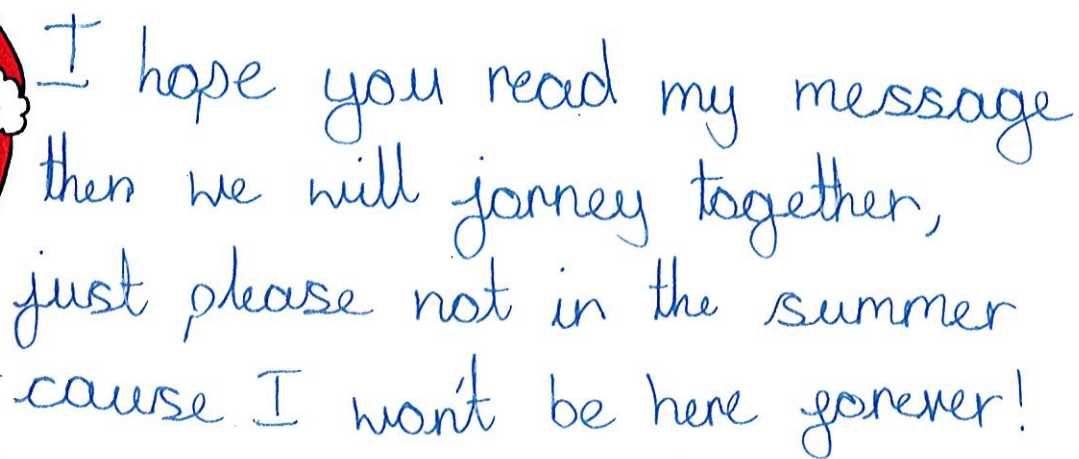 I hope you read my message
then we will jorney together,
just please not in the summer
cause I won't be here forever!